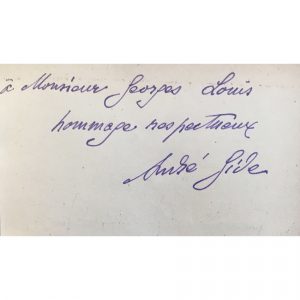 à Monsieur Georges Louis
hommage respectueux
André Gide